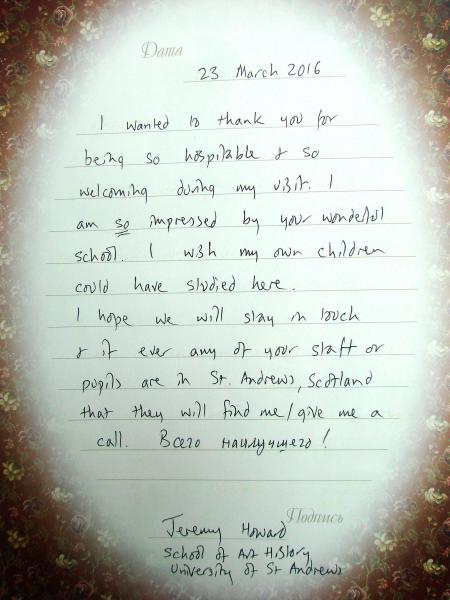 Дата
23 March 2016
I wanted to thank you for
being so hospitable & so
welcoming during my visit. I
am so impressed by your wonderful
school. I wish my own children
could have studied here.
I hope we will stay in touch
& if ever any of your staff or
pupils are in St. Andrews, Scotland
that they will find me/give me a
call. Всего наилучшего!
Подпись
Jeremy Howard
School of Art History
University of St Andrews